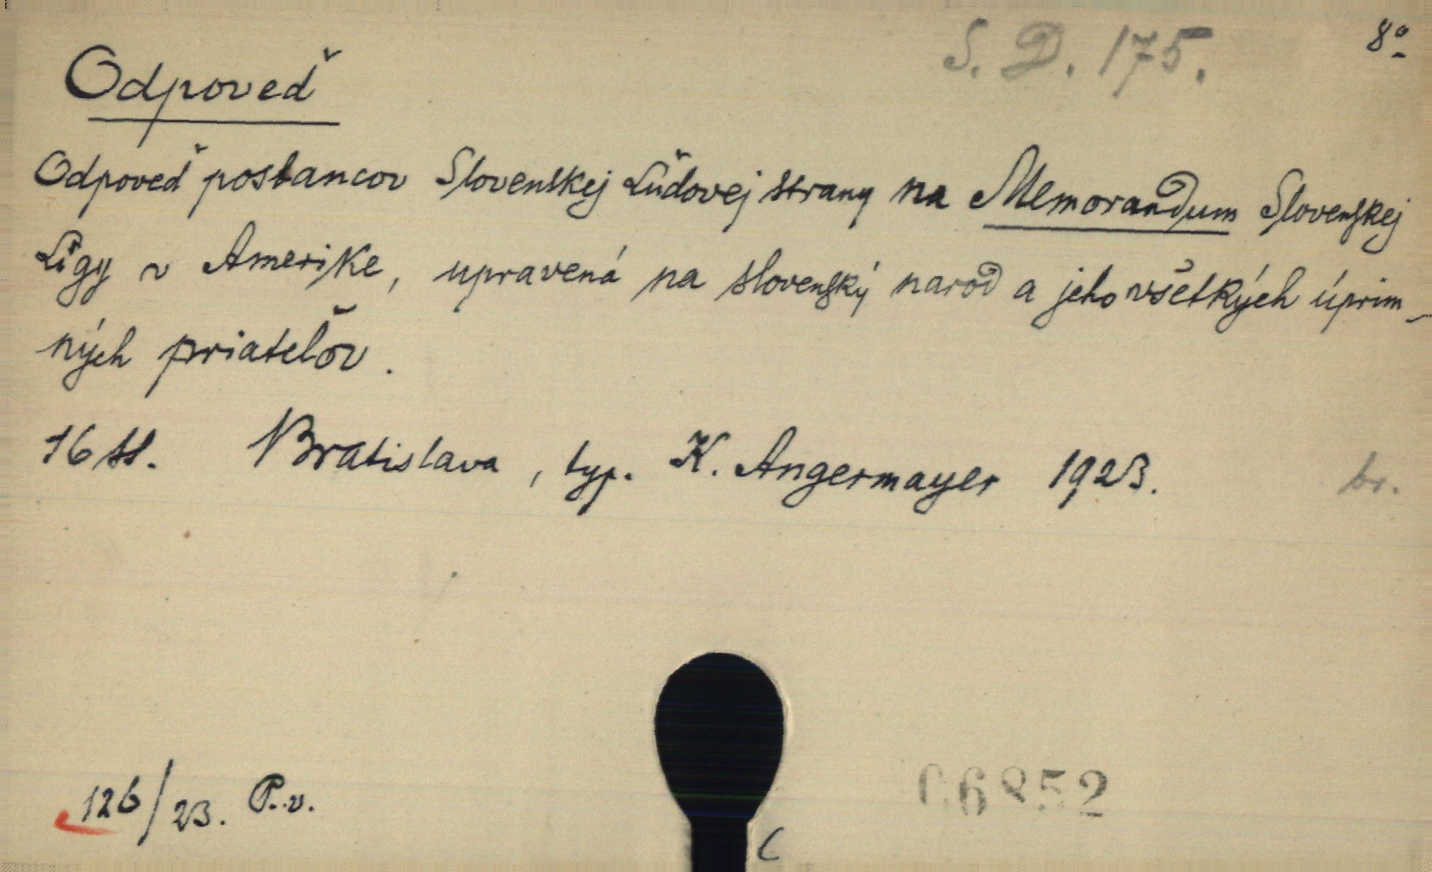 S. D. 175.
8°
Odpoveď
Odpoveď poslancov Slovenskej Ľudovej strany na Memorandum Slovenskej
Ligy v Amerike, upravená na slovenský národ a jeho všetkých úprim-
ných priateľov.
16 ss. Bratislava, typ. K. Angermayer 1923.
br.
126/23. P. v.
06852
C